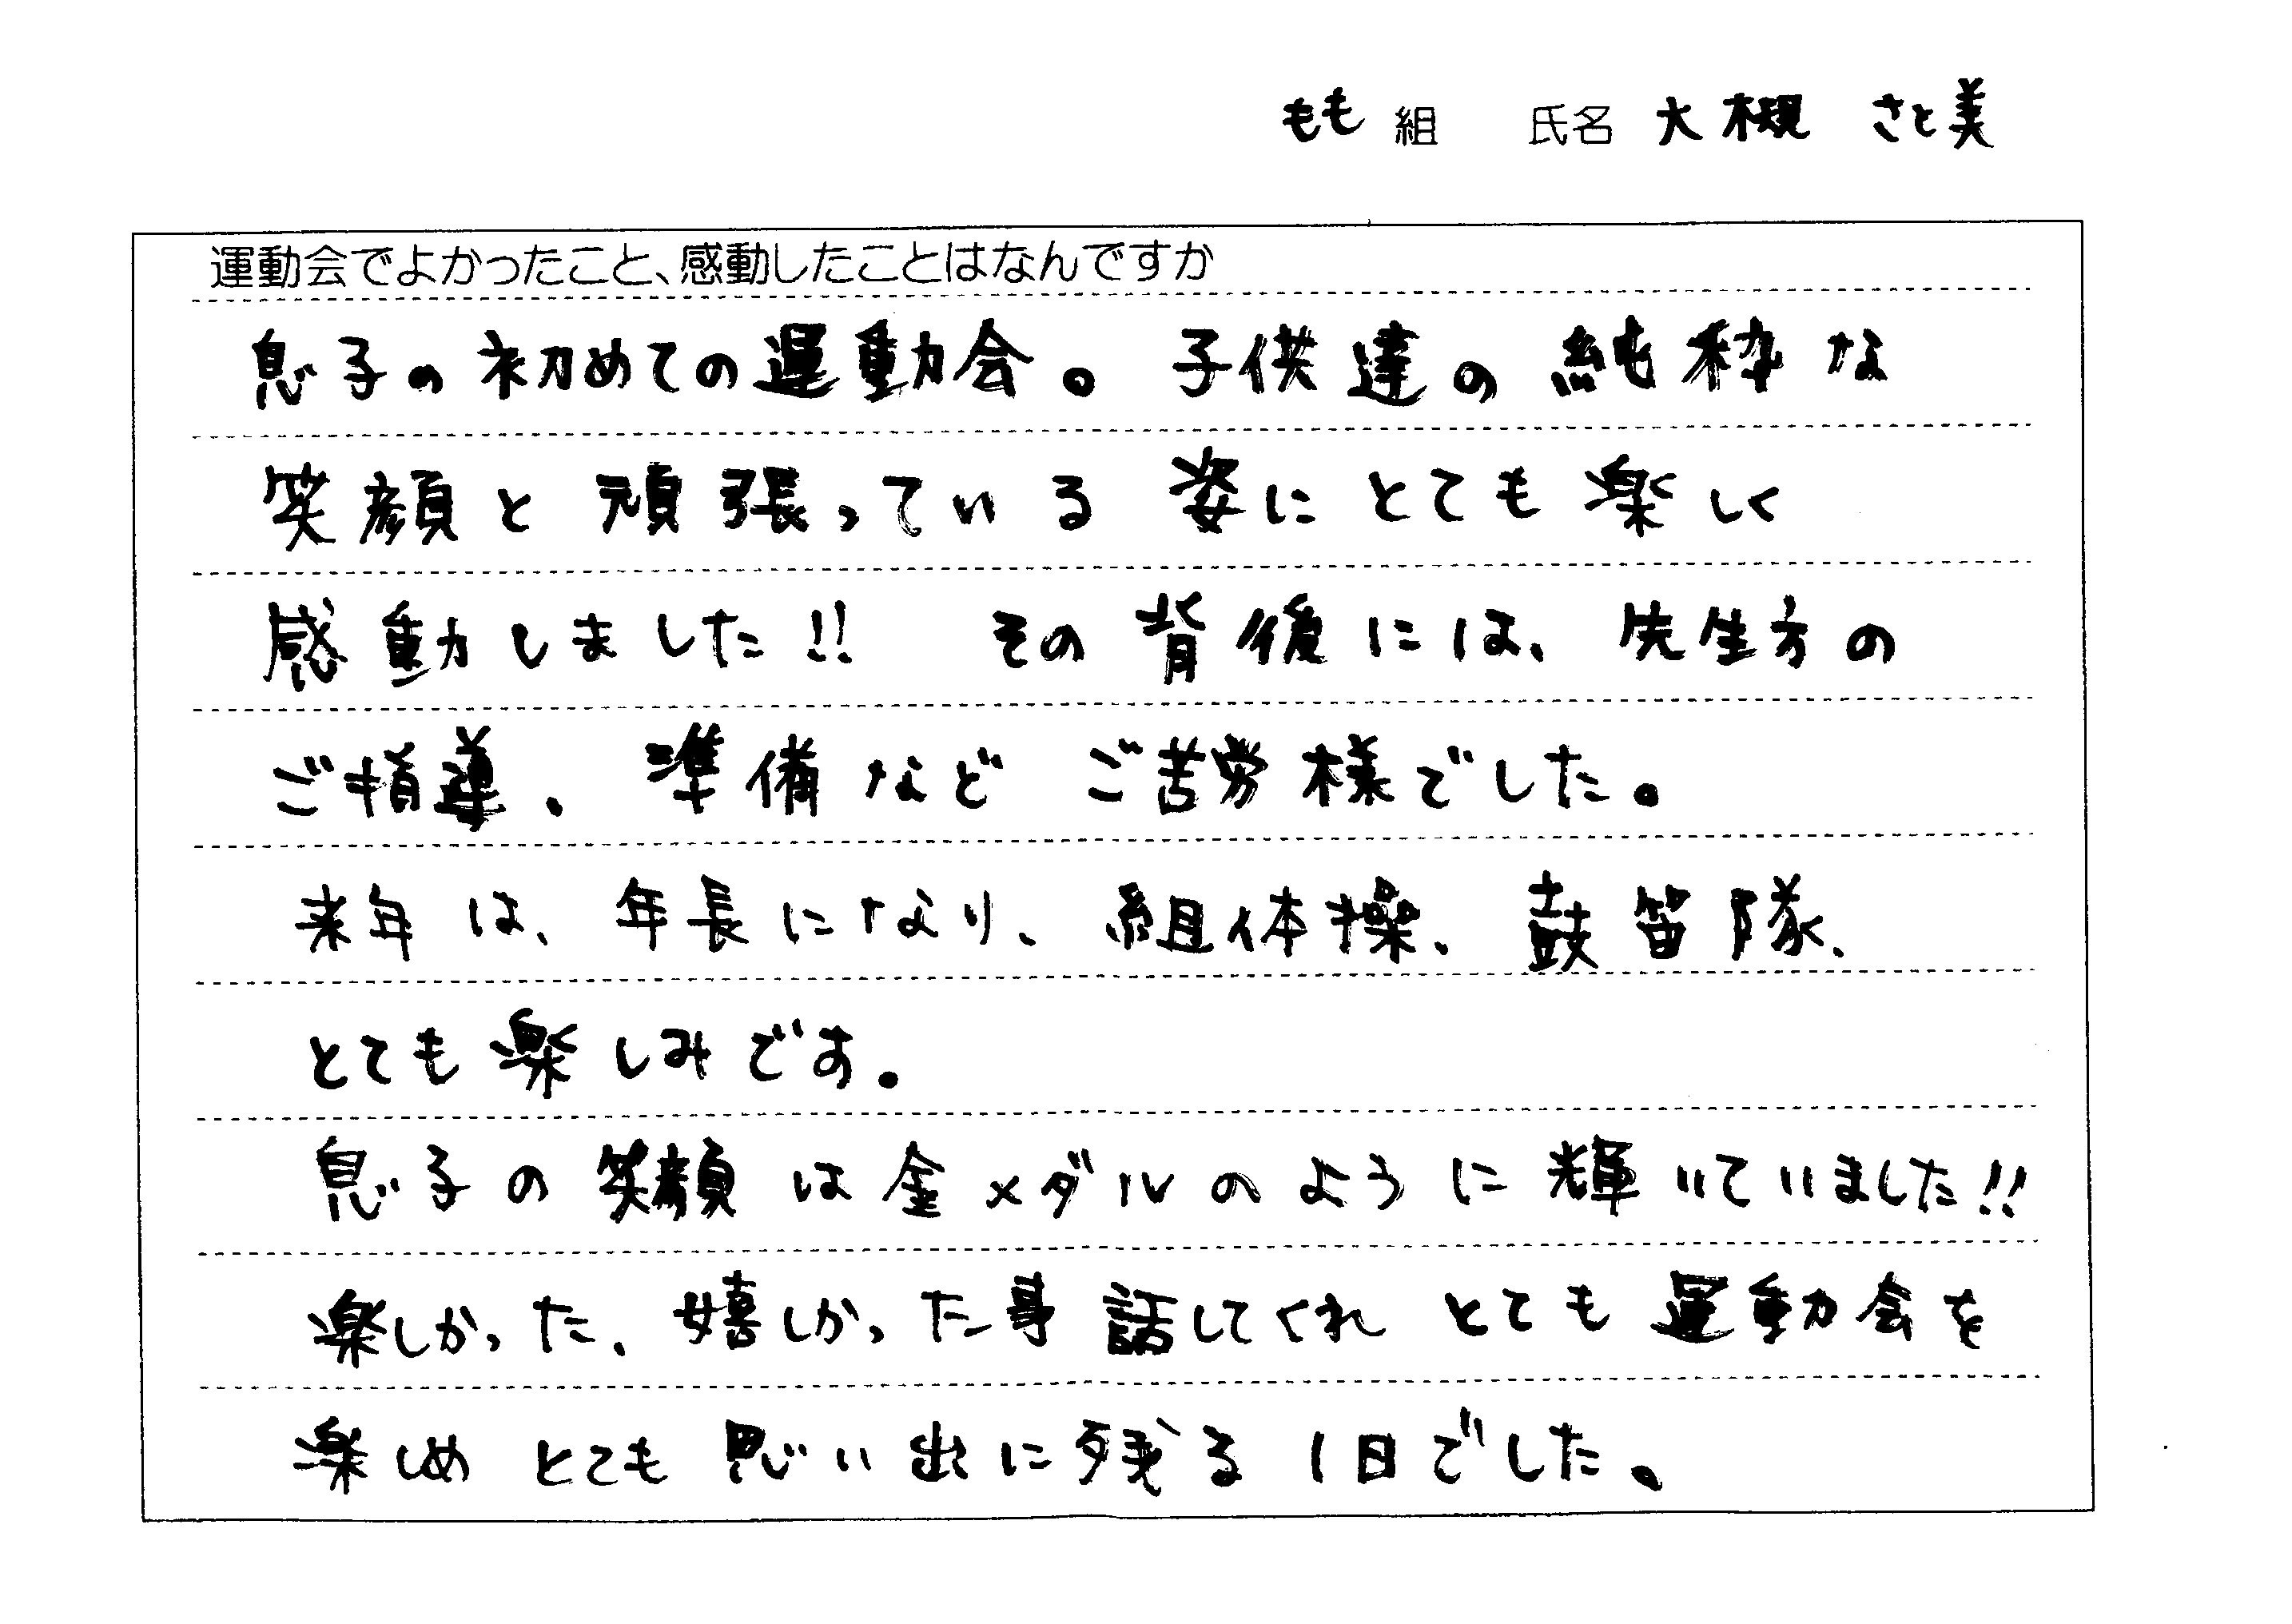 もも 組　氏名 大槻 さと美
運動会でよかったこと、感動したことはなんですか
息子の初めての運動会。子供達の純粋な
笑顔と頑張っている姿にとても楽しく
感動しました!! その背後には、先生方の
ご指導、準備などご苦労様でした。
来年は、年長になり、組体操、鼓笛隊、
とても楽しみです。
息子の笑顔は金メダルのように輝いていました!!
楽しかった、嬉しかった事話してくれとても運動会を
楽しめとても思い出に残る1日でした。